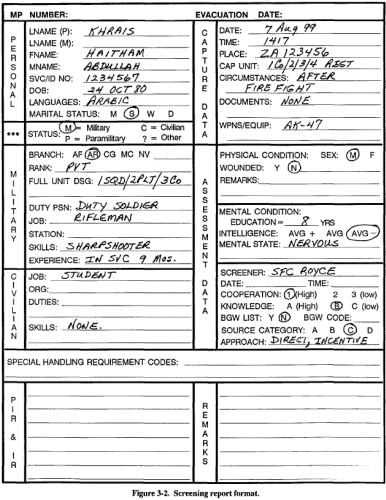 MP NUMBER: EVACUATION DATE:
PERSONAL
LNAME (P): KHRAIS
LNAME (M):
FNAME: HAITHAM
MNAME: ABDULLAH
SVC/ID NO: 1234567
DOB: 24 OCT 80
LANGUAGES: ARABIC
MARITAL STATUS: M S W D
*** STATUS: M = Military C = Civilian
P = Paramilitary ? = Other
CAPTURE DATA
DATE: 7 Aug 99
TIME: 1417
PLACE: ZA 123456
CAP UNIT: 1Co/2/3/4 REGT
CIRCUMSTANCES: AFTER
FIRE FIGHT
DOCUMENTS: NONE
WPNS/EQUIP: AK-47
MILITARY
BRANCH: AF AR CG MC NV
RANK: PVT
FULL UNIT DSG: 1SQD/2PLT/3Co
DUTY PSN: DUTY SOLDIER
JOB: RIFLEMAN
STATION:
SKILLS: SHARPSHOOTER
EXPERIENCE: IN SVC 9 Mos.
CIVILIAN
JOB: STUDENT
ORG:
DUTIES:
SKILLS: NONE.
ASSESSMENT DATA
PHYSICAL CONDITION: SEX: M F
WOUNDED: Y N
REMARKS:
MENTAL CONDITION:
EDUCATION = 8 YRS
INTELLIGENCE: AVG + AVG AVG -
MENTAL STATE: NERVOUS
SCREENER: SFC ROYCE
DATE: TIME:
COOPERATION: 1 (High) 2 3 (low)
KNOWLEDGE: A (High) B C (low)
BGW LIST: Y N BGW CODE:
SOURCE CATEGORY: A B C D
APPROACH: DIRECT, INCENTIVE
SPECIAL HANDLING REQUIREMENT CODES:
PIR & IR
REMARKS
Figure 3-2. Screening report format.